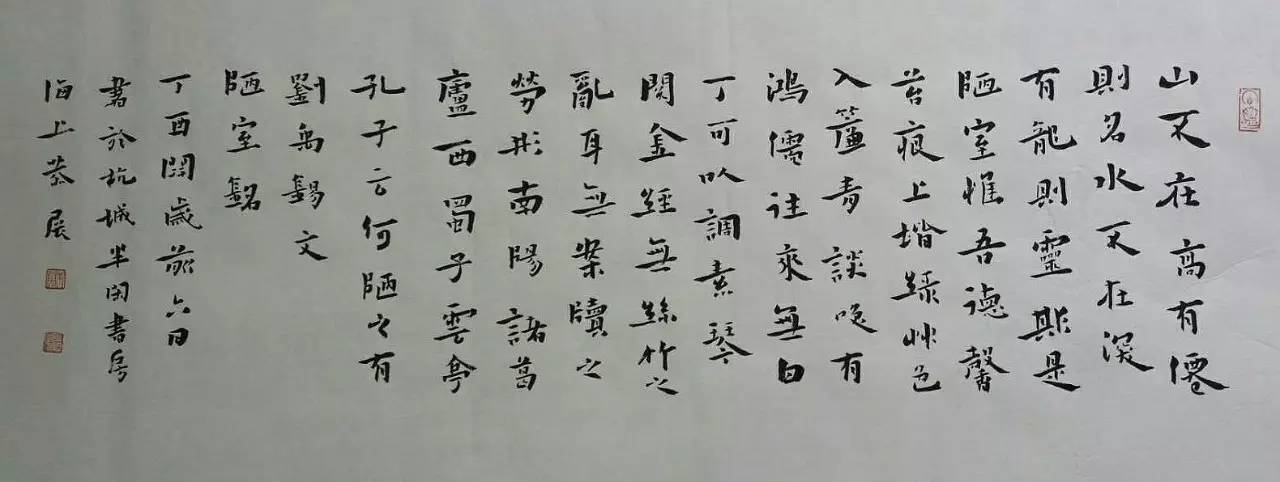 山不在高有僊
則名水不在深
有龍則靈斯是
陋室惟吾德馨
苔痕上堦綠艸色
入簾青談咲有
鴻儒往來無白
丁可以調素琴
閱金經無絲竹之
亂耳無案牘之
勞形南陽諸葛
廬西蜀子雲亭
孔子云何陋之有
劉禹錫文
陋室銘
丁酉歲前六日
書於杭城半閑書房
海上展